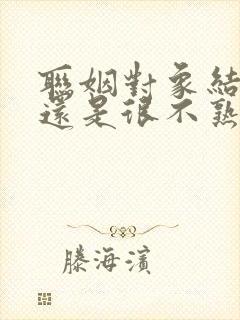 聯姻對象結
還是很不熟
滕海濱